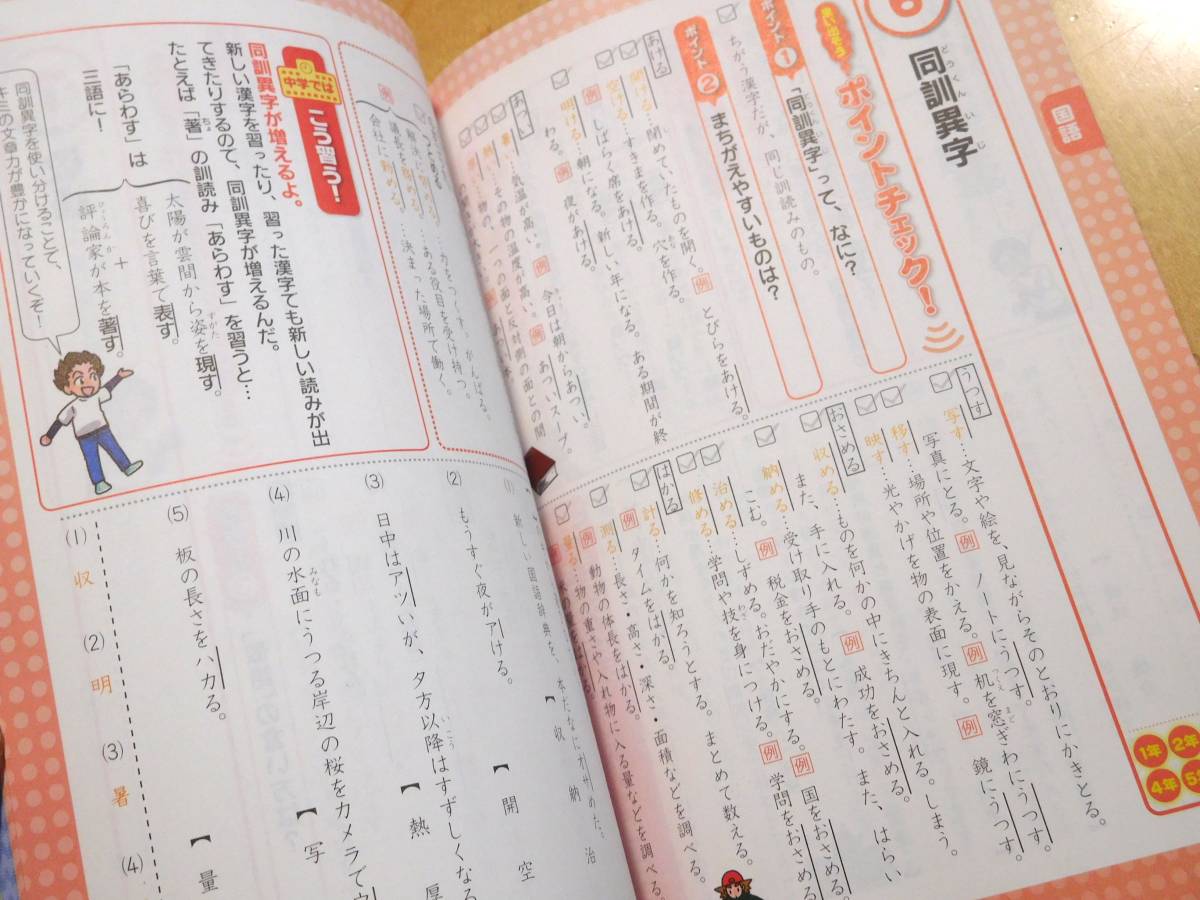 国語
同訓異字
どうくんいじ
思い出そう
ポイントチェック!
1年
2年
4年
ポイント1 「同訓異字」って、なに?
ちがう漢字だが、同じ訓読みのもの。
ポイント2 まちがえやすいものは?
あける
開ける…閉めていたものを開く。例 とびらをあける。
空ける…すきまを作る。穴を作る。
例 しばらく席をあける。
明ける…朝になる。新しい年になる。ある期間が終
わる。例 夜があける。
あつい
暑い…気温が高い。例 今日は朝からあつい。
熱い…その物の温度が高い。例 あついスープ。
うつす
写す…文字や絵を、見ながらそのとおりにかきとる。
写真にとる。例 ノートにうつす。
移す…場所や位置をかえる。例 机を窓ぎわにうつす。
映す…光やかげを物の表面に現す。例 鏡にうつす。
おさめる
収める…ものを何かの中にきちんと入れる。しまう。
また、手に入れる。例 成功をおさめる。
納める…受け取り手のもとにわたす。また、はらい
こむ。例 税金をおさめる。
治める…しずめる。おだやかにする。例 国をおさめる。
修める…学問や技を身につける。例 学問をおさめる
はかる
計る…何かを知ろうとする。まとめて数える。
例 タイムをはかる。
測る…長さ・高さ・深さ・面積などを調べる。
例 動物の体長をはかる。
量る…物の重さや入れ物に入る量などを調べる。
…ある役目を受け持つ。
例 議長を務める。
…決まった場所で働く。
例 会社に勤める。
中学では
こう習う!
同訓異字が増えるよ。
新しい漢字を習ったり、習った漢字でも新しい読みが出
てきたりするので、同訓異字が増えるんだ。
たとえば「著」の訓読み「あらわす」を習うと…
「あらわす」は
三語に!
太陽が雲間から姿を現す。
喜びを言葉で表す。
+
評論家が本を著す。
同訓異字を使い分けることで、
キミの文章力が豊かになっていくぞ!
新しい国語辞典を、本だなにオサめた。
【 収 納 治
(2) もうすぐ夜がアける。
【 開 空
(3) 日中はアツいが、夕方以降はすずしくなる
【 熱 厚
(4) 川の水面にうつる岸辺の桜をカメラでウ
【 写
(5) 板の長さをハカる。
【 量
(1) 収 (2) 明 (3) 暑 (4)